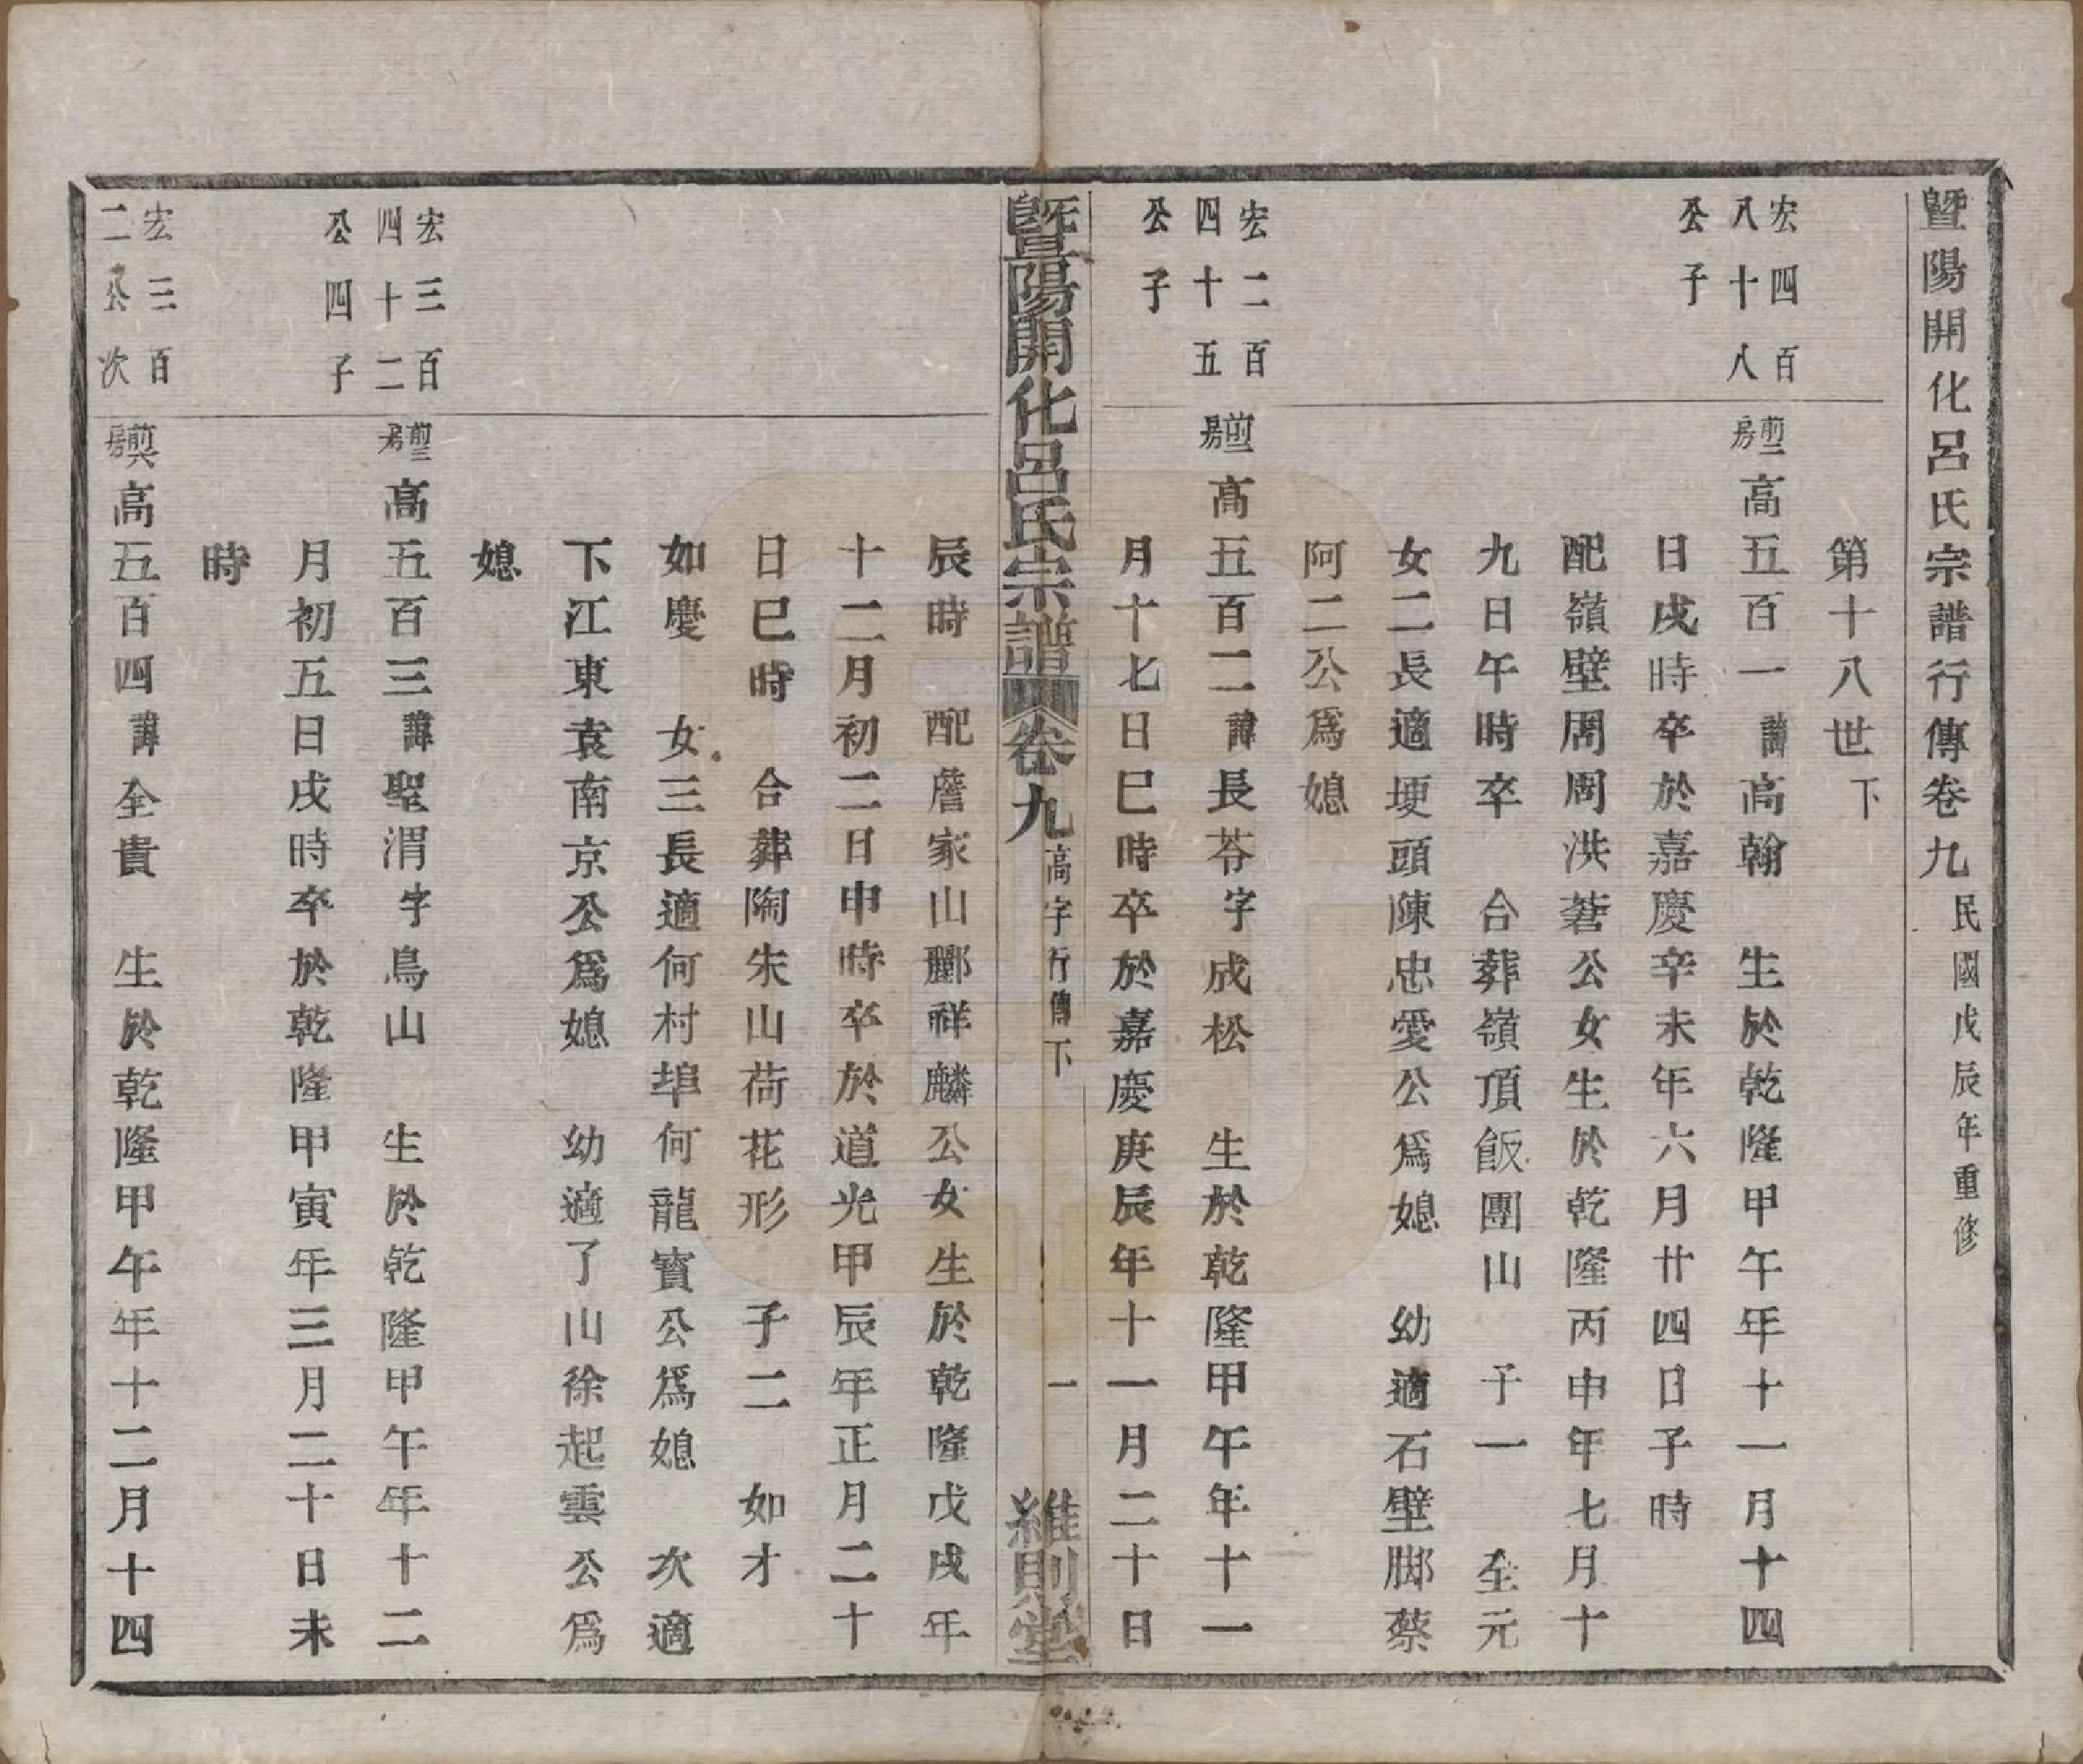 暨陽開化呂氏宗譜行傳卷九民國戊辰年重修
第十八世下
宏四百
八十八
公子
高五百一諱高翰　生於乾隆甲午年十一月十四
日戌時卒於嘉慶辛未年六月廿四日子時
配嶺壁周周洪蒼公女生於乾隆丙申年七月十
九日午時卒　合葬嶺頂飯團山　子一　至元
女二長適埂頭陳忠愛公爲媳　幼適石壁脚蔡
阿二公爲媳
宏二百
四十五
公子
高五百二諱長苓字成松　生於乾隆甲午年十一
月十七日巳時卒於嘉慶庚辰年十一月二十日
暨陽開化呂氏宗譜卷九高字行傳下　一　維則堂
辰時　配詹家山酈祥麟公女生於乾隆戊戌年
十二月初二日申時卒於道光甲辰年正月二十
日巳時　合葬陶朱山荷花形　子二　如才
如慶　女三長適何村埠何龍寶公爲媳　次適
下江東袁南京公爲媳　幼適了山徐起雲公爲
媳
宏三百
四十二
公四子
高五百三諱聖渭字鳥山　生於乾隆甲午年十二
月初五日戌時卒於乾隆甲寅年三月二十日未
時
宏三百
二公次
高五百四諱全貴　生於乾隆甲午年十二月十四